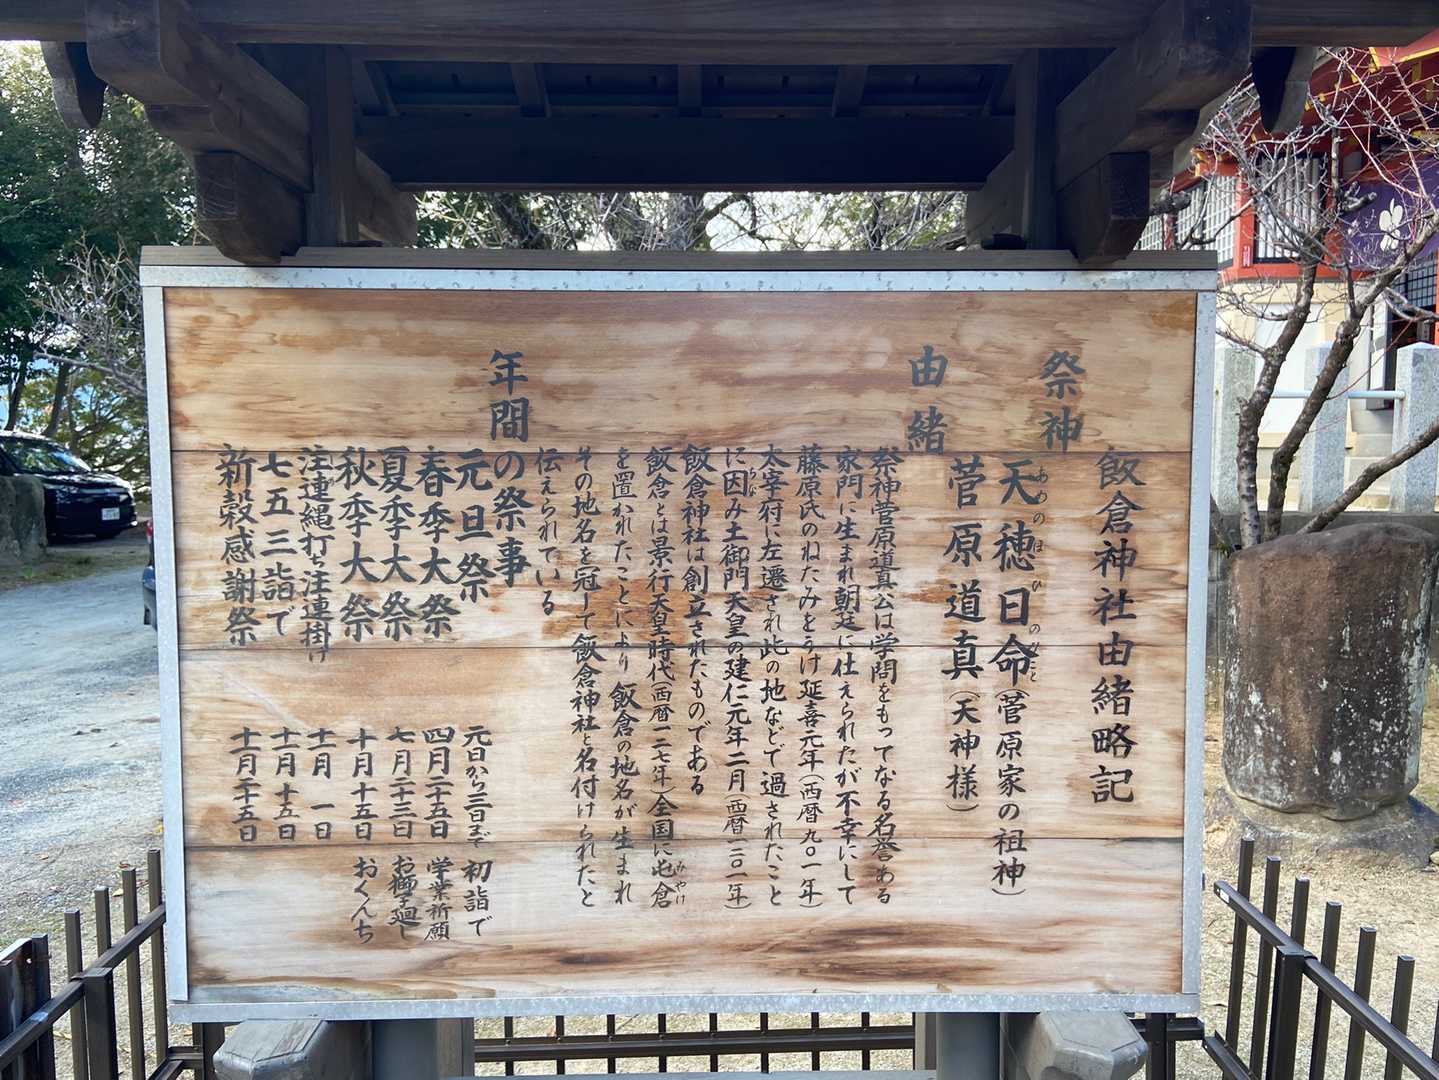 飯倉神社由緒略記
祭神
天穂日命(菅原家の祖神)
あめのほひのみこと
菅原道真(天神様)
由緒
祭神菅原道真公は学問をもってなる名誉ある
家門に生まれ朝廷に仕えられたが不幸にして
藤原氏のねたみをうけ延喜元年(西暦九〇一年)
太宰府に左遷され此の地などで過されたこと
に因み土御門天皇の建仁元年二月(西暦一二〇一年)
ちな
飯倉神社は創立されたものである
飯倉とは景行天皇時代(西暦一二七年)全国に屯倉
みやけ
を置かれたことにより飯倉の地名が生まれ
その地名を冠して飯倉神社と名付けられたと
伝えられている
年間の祭事
元旦祭 元日から三日まで 初詣で
春季大祭 四月二十五日 学業祈願
夏季大祭 七月二十三日 お獅子廻し
秋季大祭 十月十五日 おくんち
注連縄打ち注連掛け 十一月一日
七五三詣で 十一月十五日
新穀感謝祭 十一月二十五日